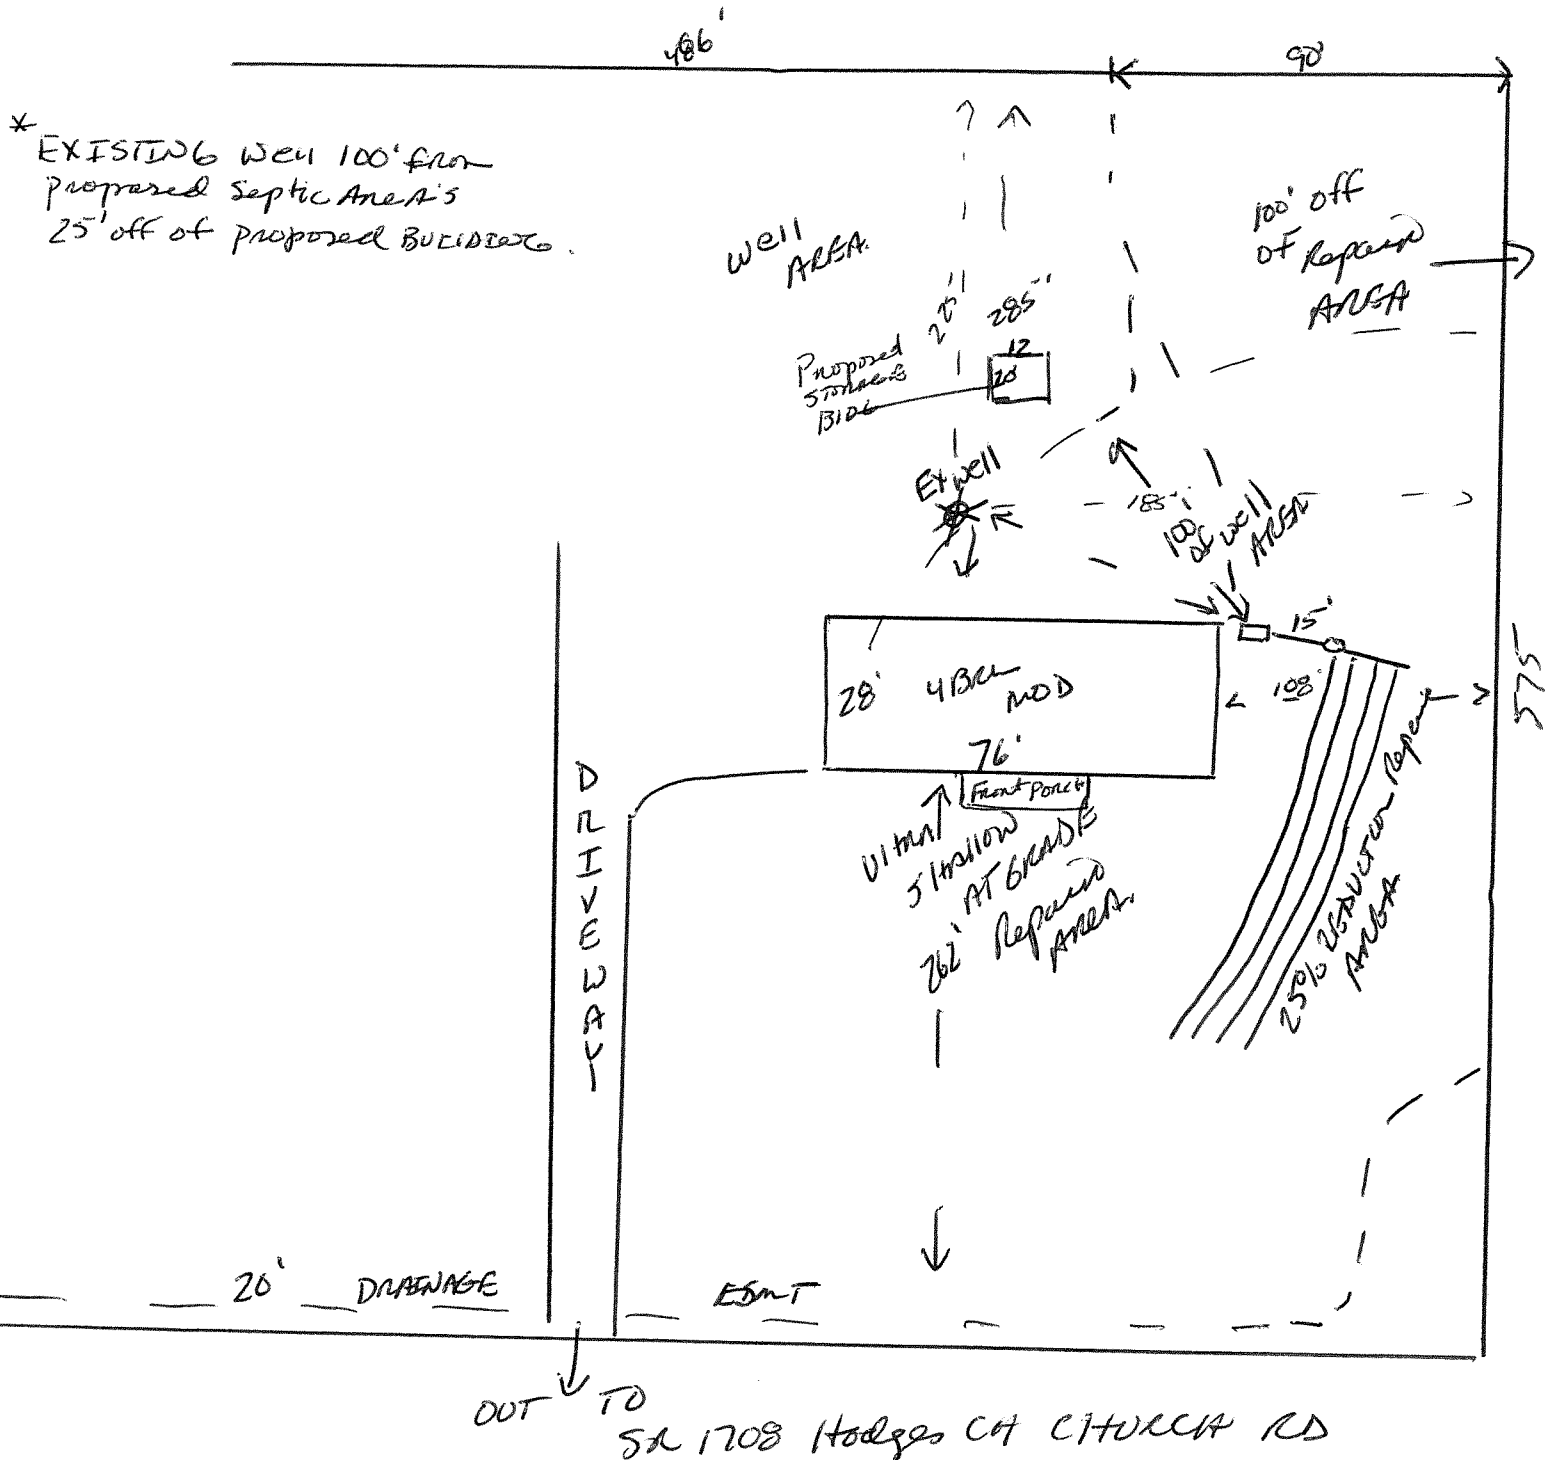 486'
90'
* EXISTING Well 100' from
Proposed Septic Area's
25' off of Proposed BUILDING.
Well
AREA.
100' off
of Repair
AREA
225'
285'
Proposed
STORAGE
BLDG
12
20'
Ex well
185'
100'
of well
AREA
15'
28'
4 BRM
MOD
76'
108'
575
Front Porch
Ultra
Shallow
AT GRADE
Repair
AREA.
262'
25% REDUCTION Repair
AREA
DRIVEWAY
20' DRAINAGE ESMT
OUT TO
SR 1708 Hodges CH CHURCH RD